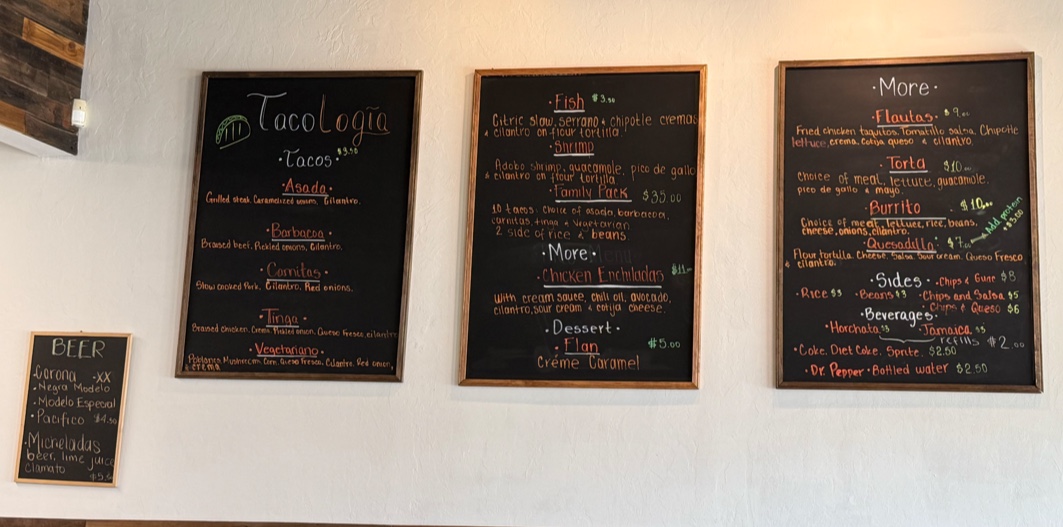 TacoLogía
·Tacos· $3.50
·Asada·
Grilled steak, Caramelized onion, Cilantro.
·Barbacoa·
Braised beef, Pickled onions, Cilantro.
·Carnitas·
Slow cooked Pork, Cilantro, Red onions.
·Tinga·
Braised chicken, Crema, Pickled onion, Queso Fresco, cilantro
·Vegetariano·
Poblanos, Mushroom, Corn, Queso Fresco, Cilantro, Red onion,
& crema
·Fish· $3.50
Citric slaw, serrano & chipotle cremas
& cilantro on flour tortilla
·Shrimp
Adobo shrimp, guacamole, pico de gallo
& cilantro on flour tortilla
·Family Pack $35.00
10 tacos. Choice of asada, barbacoa,
carnitas, tinga & vegetarian
2 side of rice & beans.
·More·
·Chicken Enchiladas $11
with cream sauce, chili oil, avocado,
cilantro, sour cream & cotija cheese.
·Dessert·
·Flan· $5.00
Créme Caramel
·More·
·Flautas· $9.00
Fried chicken taquitos, Tomatillo salsa, Chipotle
lettuce, crema, cotija queso & cilantro.
·Torta $10
Choice of meat, lettuce, guacamole,
pico de gallo & mayo.
·Burrito $10.00
Choice of meat, lettuce, rice, beans,
cheese, onions, cilantro.
Add protein
+$3.00
·Quesadilla· $7.00
Flour tortilla, Cheese, Salsa, Sour cream, Queso Fresco
& cilantro.
·Sides· ·Chips & Guac $8
·Rice $3 ·Beans $3 ·Chips and Salsa $5
·Chips & Queso $6
·Beverages·
·Horchata $3 ·Jamaica $3
refills $2.00
·Coke, Diet Coke, Sprite. $2.50
·Dr. Pepper ·Bottled water $2.50
BEER
·Corona ·XX
·Negra Modelo
·Modelo Especial
·Pacifico $4.50
·Micheladas
beer, lime juice
clamato